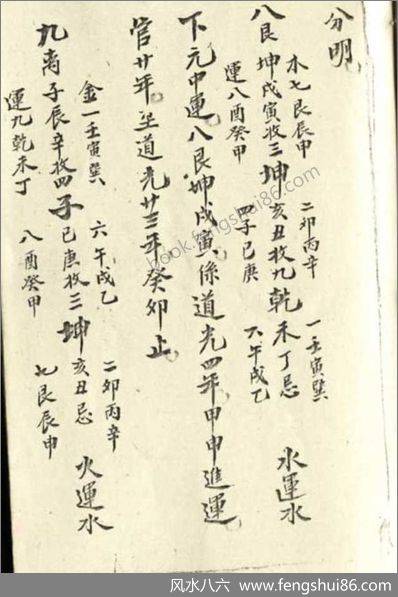 分明
木七艮辰申 二卯丙辛 一壬寅巽
八艮坤戌寅收三坤亥丑收九乾未丁忌 水運水
運八酉癸甲 四子巳庚 六午戌乙
下元中運八艮坤戌寅係道光四年甲申進運
管廿年至道光廿三年癸卯止
金一壬寅巽 六午戌乙 二卯丙辛
九离子辰辛收四子巳庚收三坤亥丑忌 火運水
運九乾未丁 八酉癸甲 七艮辰申
book.fengshui86.com
风水八六 www.fengshui86.com